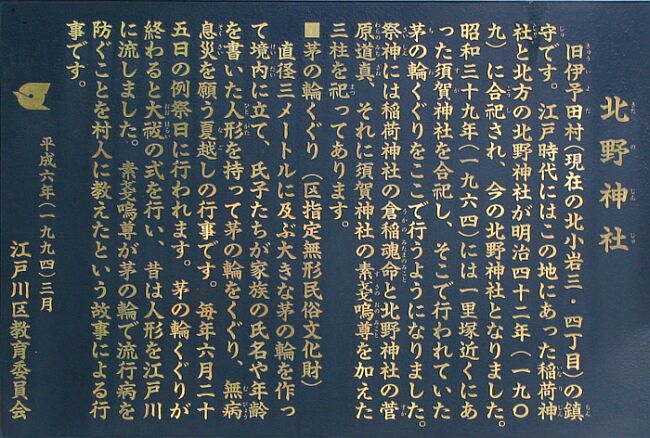 北野神社
旧伊予田村(現在の北小岩三・四丁目)の鎮
守です。江戸時代にはこの地にあった稲荷神
社と北方の北野神社が明治四十二年(一九〇
九)に合祀され、今の北野神社となりました。
昭和三十九年(一九六四)には一里塚近くにあ
った須賀神社を合祀し、そこで行われていた
茅の輪くぐりをここで行うようになりました。
祭神には稲荷神社の倉稲魂命と北野神社の菅
原道真、それに須賀神社の素戔嗚尊を加えた
三柱を祀ってあります。
■茅の輪くぐり(区指定無形民俗文化財)
直径三メートルに及ぶ大きな茅の輪を作っ
て境内に立て、氏子たちが家族の氏名や年齢
を書いた人形を持って茅の輪をくぐり、無病
息災を願う夏越しの行事です。毎年六月二十
五日の例祭日に行われます。茅の輪くぐりが
終わると大祓の式を行い、昔は人形を江戸川
に流しました。素戔嗚尊が茅の輪で流行病を
防ぐことを村人に教えたという故事による行
事です。
平成六年(一九九四)三月
江戸川区教育委員会